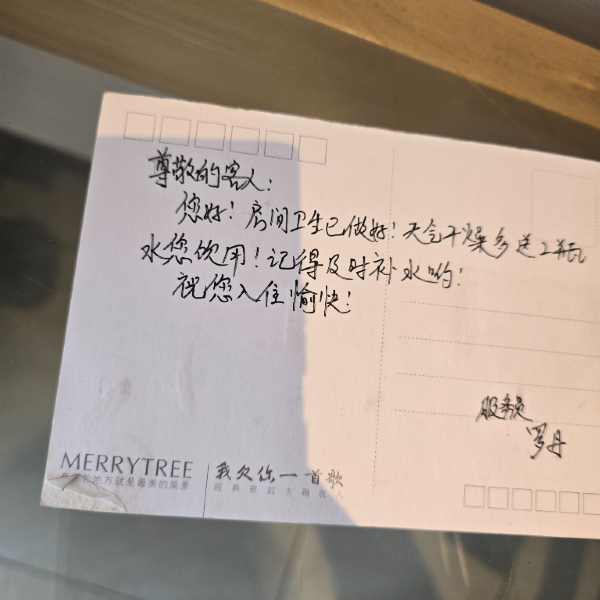 尊敬的客人：
您好！房间卫生已做好！天气干燥多送2瓶
水您饮用！记得及时补水哟！
祝您入住愉快！
服务员
罗丹
MERRYTREE
地方就是最美的風景
我欠你一首歌
經典歌詞